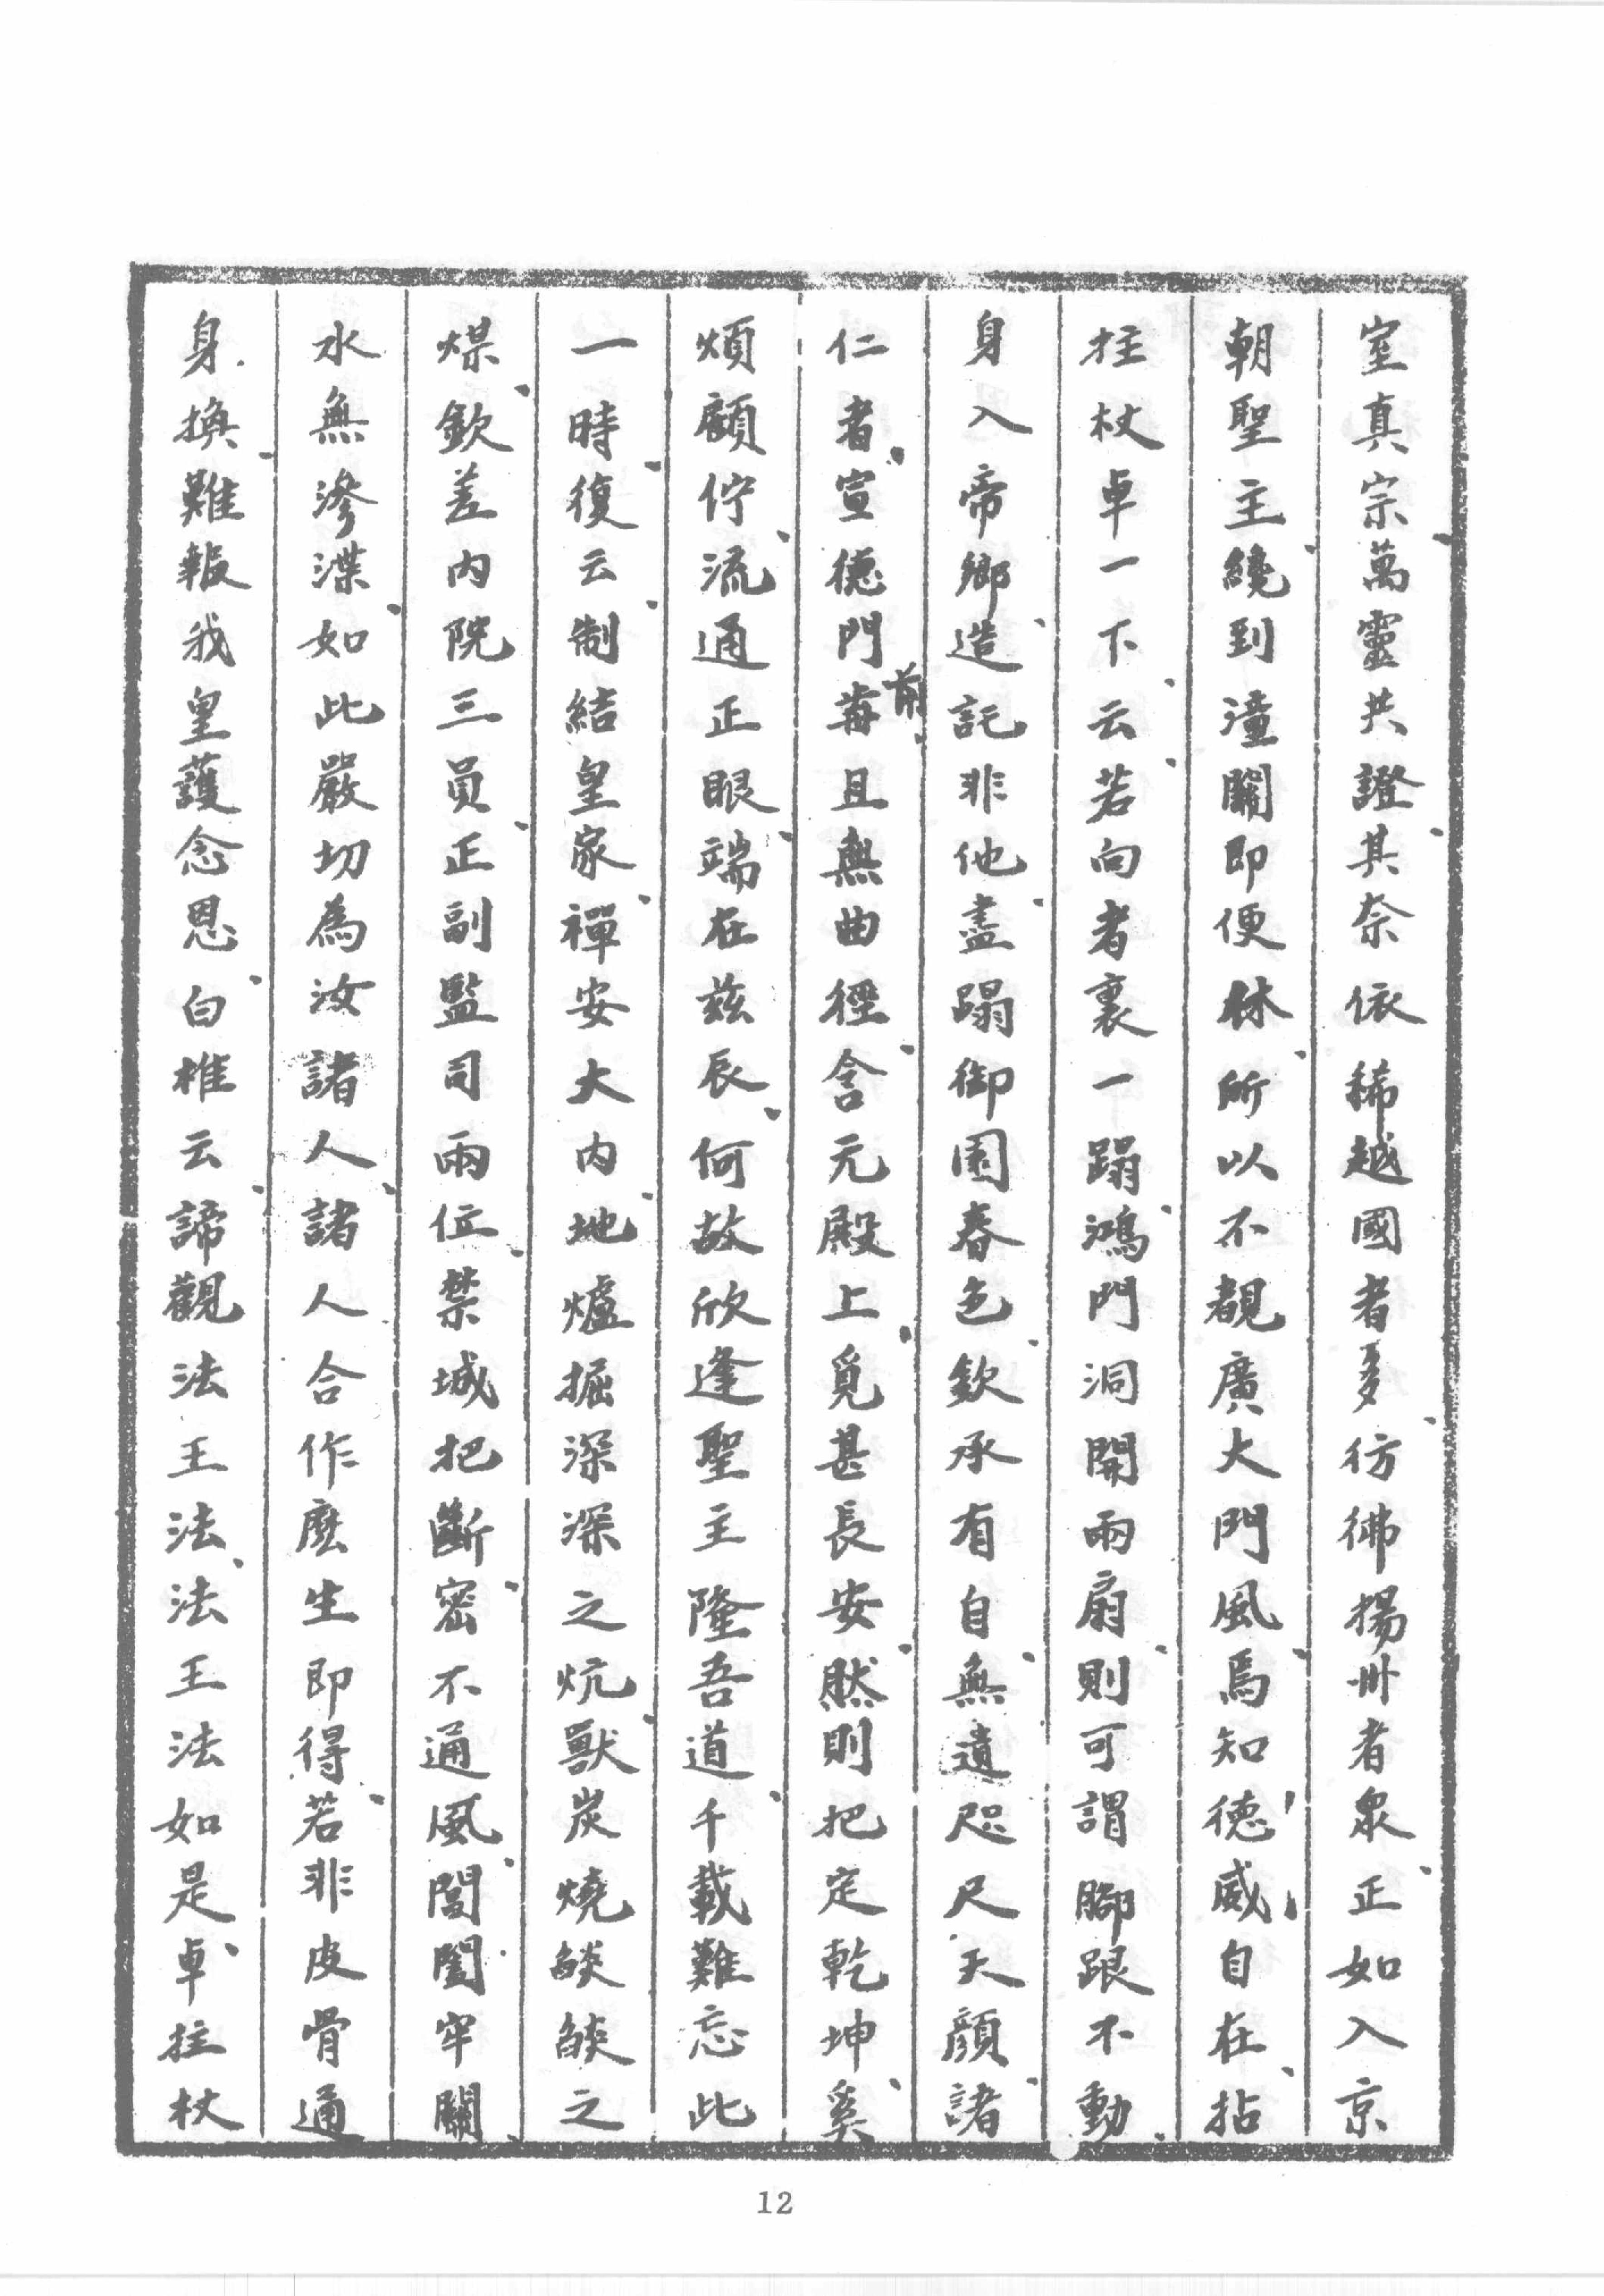 室真宗萬靈共證其奈依稀越國者多彷彿揚州者衆正如入京
朝聖主纔到潼關即便休所以不覩廣大門風焉知德威自在拈
拄杖卓一下云若向者裏一蹋鴻門洞開兩扇則可謂腳跟不動
身入帝鄉造詣非他盡蹋御園春色欽承有自無遺咫尺天顏諸
仁者宣德門前每且無曲徑含元殿上覓甚長安然則把定乾坤奚
煩顧佇流通正眼端在茲辰何故欣逢聖主隆吾道千載難忘此
一時復云制結皇家禪安大內地爐掘深深之炕獸炭燒燄燄之
煤欽差內院三員正副監司兩位禁城把斷密不通風閶闔牢關
水無滲渫如此嚴切為汝諸人諸人合作麼生即得若非皮骨通
身換難報我皇護念恩白椎云諦觀法王法法王法如是卓拄杖
12